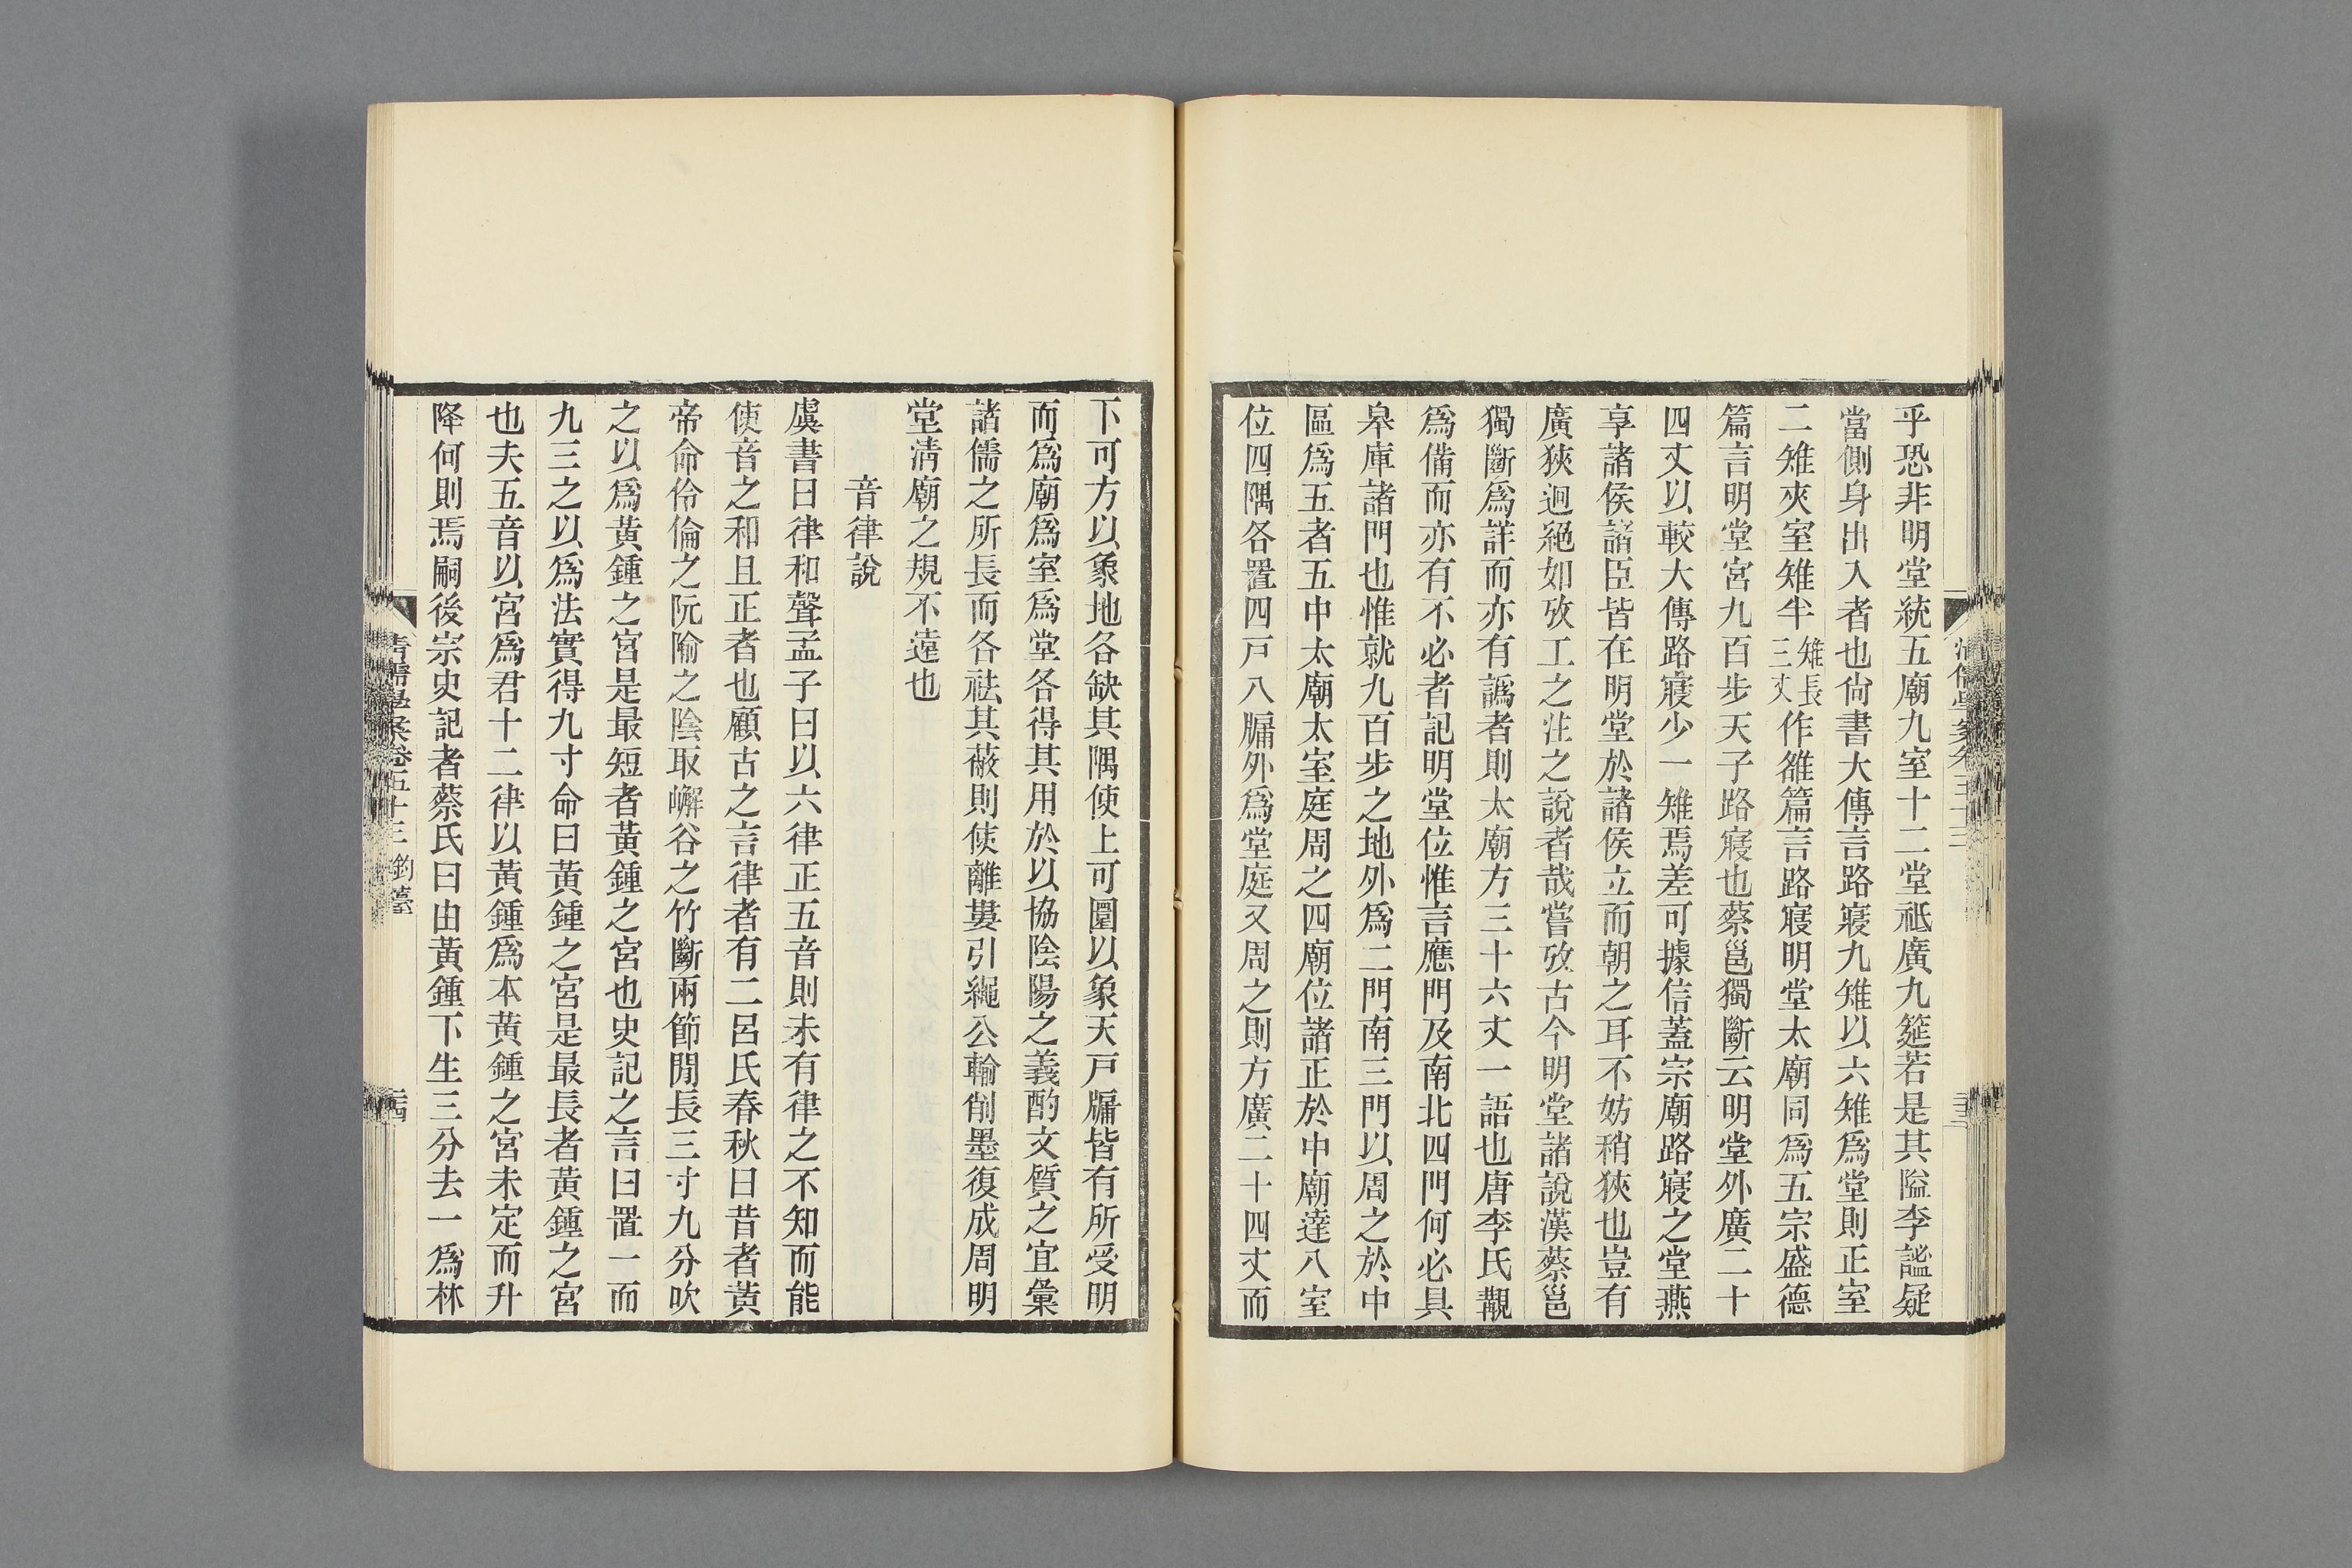 乎恐非明堂統五廟九室十二堂祗廣九筵若是其隘李謐疑
當側身出入者也尙書大傳言路寢九雉以六雉爲堂則正室
二雉夾室雉半雉長三丈作雒篇言路寢明堂太廟同爲五宗盛德
篇言明堂宮九百步天子路寢也蔡邕獨斷云明堂外廣二十
四丈以較大傳路寢少一雉焉差可據信蓋宗廟路寢之堂燕
享諸侯諸臣皆在明堂於諸侯立而朝之耳不妨稍狹也豈有
廣狹迥絕如攷工之注之說者哉嘗攷古今明堂諸說漢蔡邕
獨斷爲詳而亦有譌者則太廟方三十六丈一語也唐李氏觀
爲備而亦有不必者記明堂位惟言應門及南北四門何必具
皋庫諸門也惟就九百步之地外爲二門南三門以周之於中
區爲五者五中太廟太室庭周之四廟位諸正於中廟達八室
位四隅各置四戸八牖外爲堂庭又周之則方廣二十四丈而
下可方以象地各缺其隅使上可圜以象天戸牖皆有所受明
而爲廟爲室爲堂各得其用於以協陰陽之義酌文質之宜彙
諸儒之所長而各祛其蔽則使離婁引繩公輸削墨復成周明
堂淸廟之規不遠也
音律說
虞書曰律和聲孟子曰以六律正五音則未有律之不知而能
使音之和且正者也顧古之言律者有二呂氏春秋曰昔者黃
帝命伶倫之阮隃之陰取嶰谷之竹斷兩節閒長三寸九分吹
之以爲黃鍾之宮是最短者黃鍾之宮也史記之言曰置一而
九三之以爲法實得九寸命曰黃鍾之宮是最長者黃鍾之宮
也夫五音以宮爲君十二律以黃鍾爲本黃鍾之宮未定而升
降何則焉嗣後宗史記者蔡氏曰由黃鍾下生三分去一爲林
清儒學案卷五十三 鈞臺